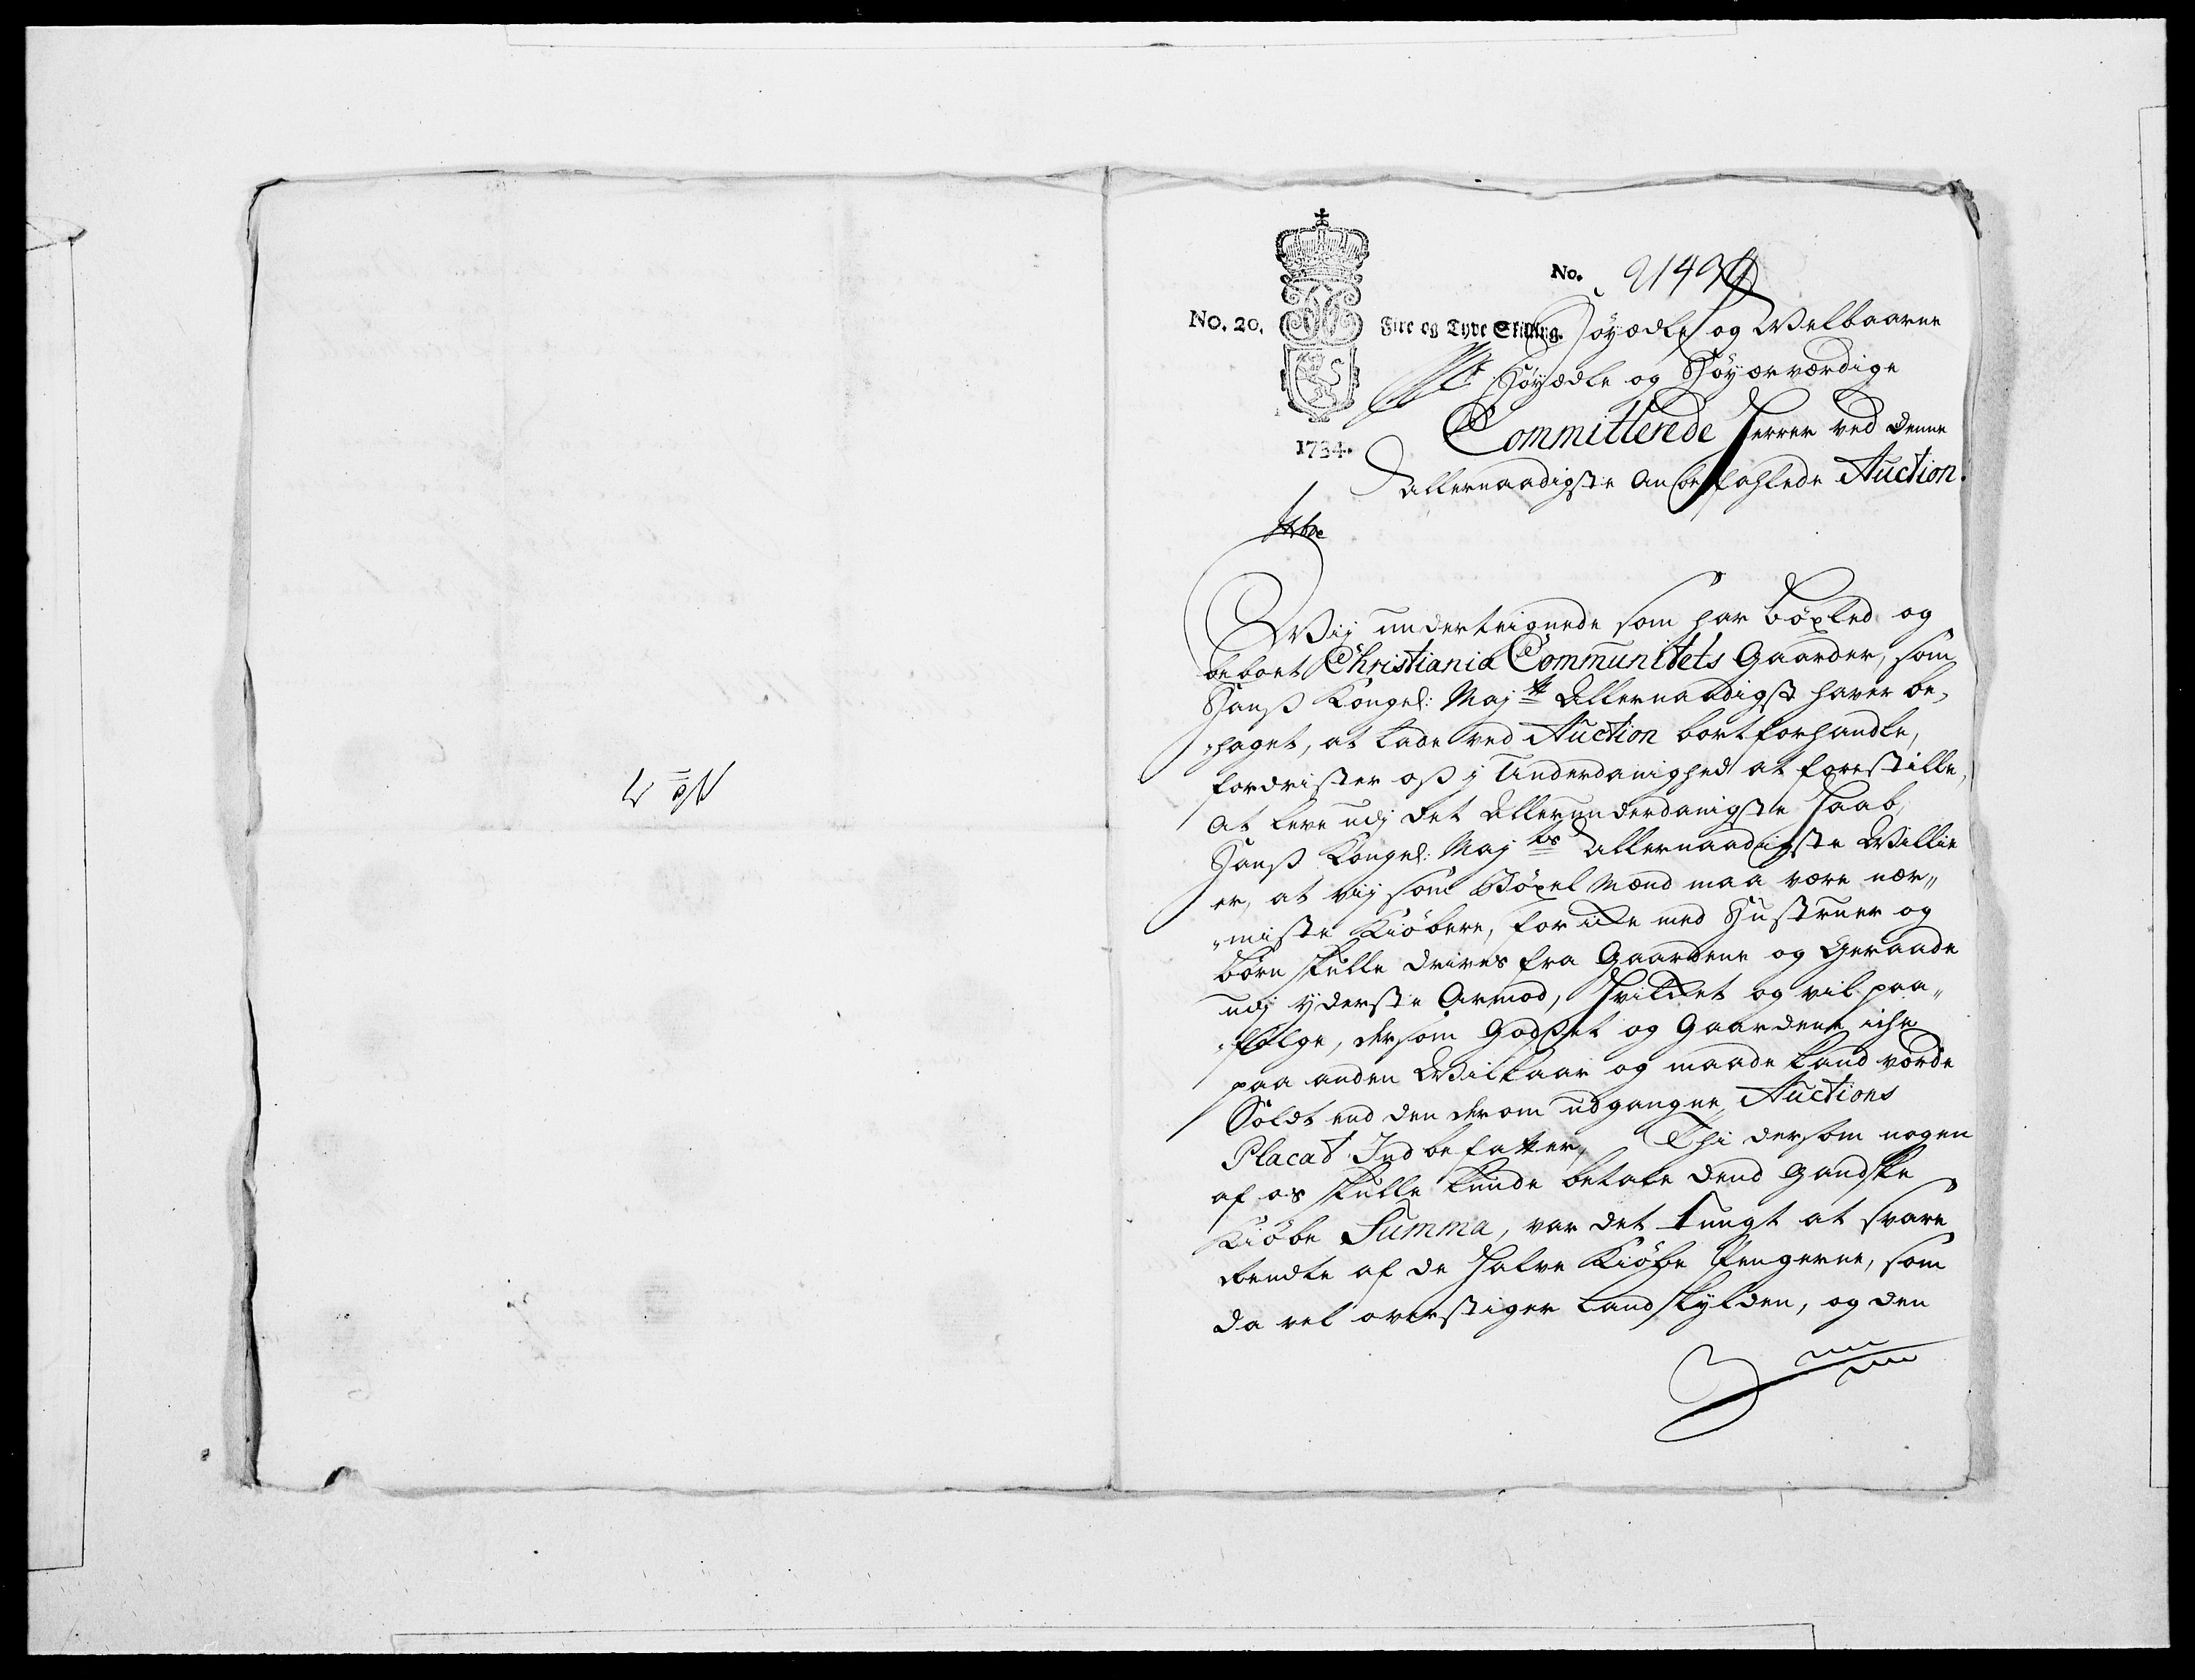 No. 7
No. 20.
Fire og Tyve Skilling.
1734.
No.
Høyædle og Welbaarne
Høyædle og Høyærværdige
Committerede Herrer ved denne
Allernaadigste Anbefahlede Auction.
Wij underteignede som har bøxled og
beboet Christiania Communitets Gaarder, som
Hanß Kongel: Maj:tt Allernaadigst haver be„
„haget, at lade ved Auction bortforhandle,
fordrister oß j Underdanighed at forestille,
At leve udj det Allerunderdanigste Haab,
Hanß Kongel: Maj:ts Allernaadigste Willie
er, at vij som Böxel Mænd maa være nær„
„miste Kiöbere, for icke med Hustruer og
börn skulle drives fra Gaardene og Geraade
udj yderste Armod, Hvilcket og vil paa„
„fölge, dersom Godset og Gaardene iche
paa anden Wilkaar og maade kand vorde
Soldt end den derom udgangne Auctions
Placat Indbefatter, Thi dersom nogen
af os skulle kunde betale dend Gandske
Kiöbe Summa, var det tungt at svare
Rendte af de Halve Kiöbe Pengerne, som
da vel overstiger Landskylden, og den